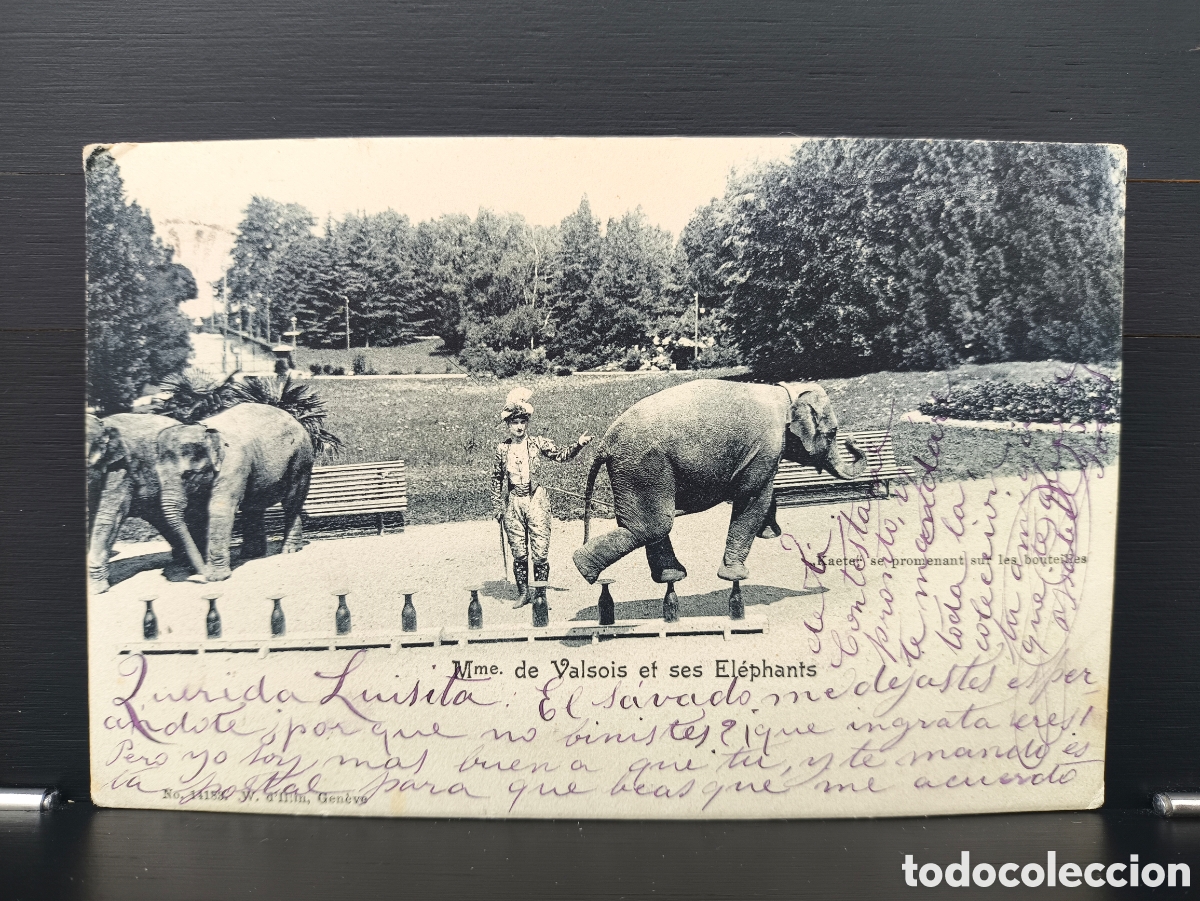 Kaeter se promenant sur les bouteilles
Mme. de Valsois et ses Eléphants
Querida Luisita: El sávado me dejastes esper-
andote, ¿por que no binistes? ¡que ingrata eres!
Pero yo soy mas buena que tu, y te mando és
ta postal para que beas que me acuerdo
de ti.
Contesta
pronto, y
te manda
toda la
que te
No. 14183. Genève
todocoleccion.net